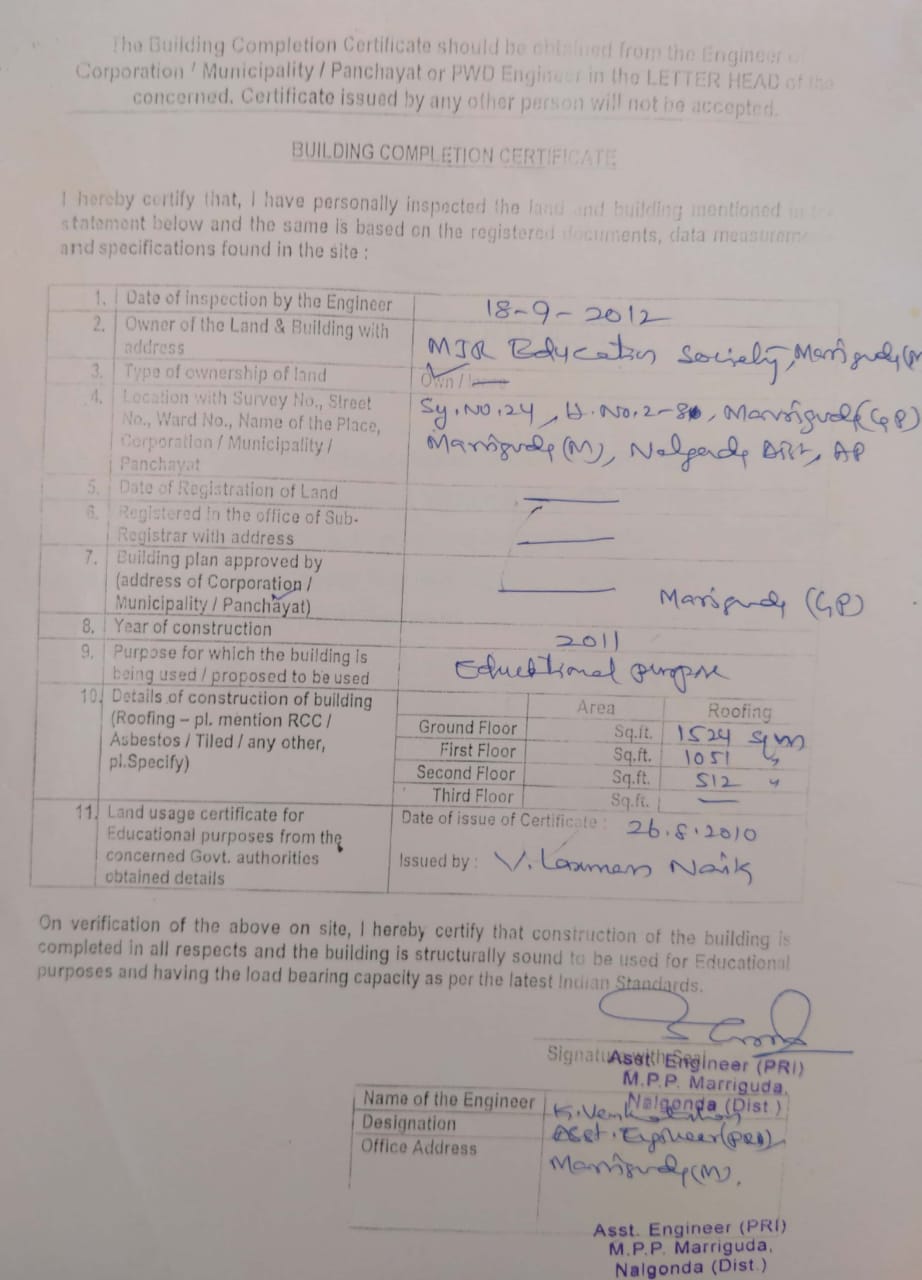 The Building Completion Certificate should be obtained from the Engineer of
Corporation / Municipality / Panchayat or PWD Engineer in the LETTER HEAD of the
concerned. Certificate issued by any other person will not be accepted.
BUILDING COMPLETION CERTIFICATE
I hereby certify that, I have personally inspected the land and building mentioned in the
statement below and the same is based on the registered documents, data measurements
and specifications found in the site :
1. Date of inspection by the Engineer 18-9-2012
2. Owner of the Land & Building with
address MJR Education Society, Marriguda(M
3. Type of ownership of land Own /
4. Location with Survey No., Street
No., Ward No., Name of the Place,
Corporation / Municipality /
Panchayat
Sy.No.24, H.No.2-80, Marriguda(GP)
Marriguda(M), Nalgonda Dist, AP
5. Date of Registration of Land
6. Registered in the office of Sub-
Registrar with address
7. Building plan approved by
(address of Corporation /
Municipality / Panchayat) Marriguda (GP)
8. Year of construction 2011
9. Purpose for which the building is
being used / proposed to be used Educational purpose
10. Details of construction of building
(Roofing – pl. mention RCC /
Asbestos / Tiled / any other,
pl.Specify)
Area Roofing
Ground Floor Sq.ft. 1524 Sqm
First Floor Sq.ft. 1051 "
Second Floor Sq.ft. 512 "
Third Floor Sq.ft. —
11. Land usage certificate for
Educational purposes from the
concerned Govt. authorities
obtained details
Date of issue of Certificate : 26.8.2010
Issued by : V. Laxman Naik
On verification of the above on site, I hereby certify that construction of the building is
completed in all respects and the building is structurally sound to be used for Educational
purposes and having the load bearing capacity as per the latest Indian Standards.
Signature with Seal
Asst. Engineer (PRI)
M.P.P. Marriguda,
Nalgonda (Dist.)
Name of the Engineer K.
Designation Asst. Engineer(PRI)
Office Address Marriguda(M).
Asst. Engineer (PRI)
M.P.P. Marriguda,
Nalgonda (Dist.)